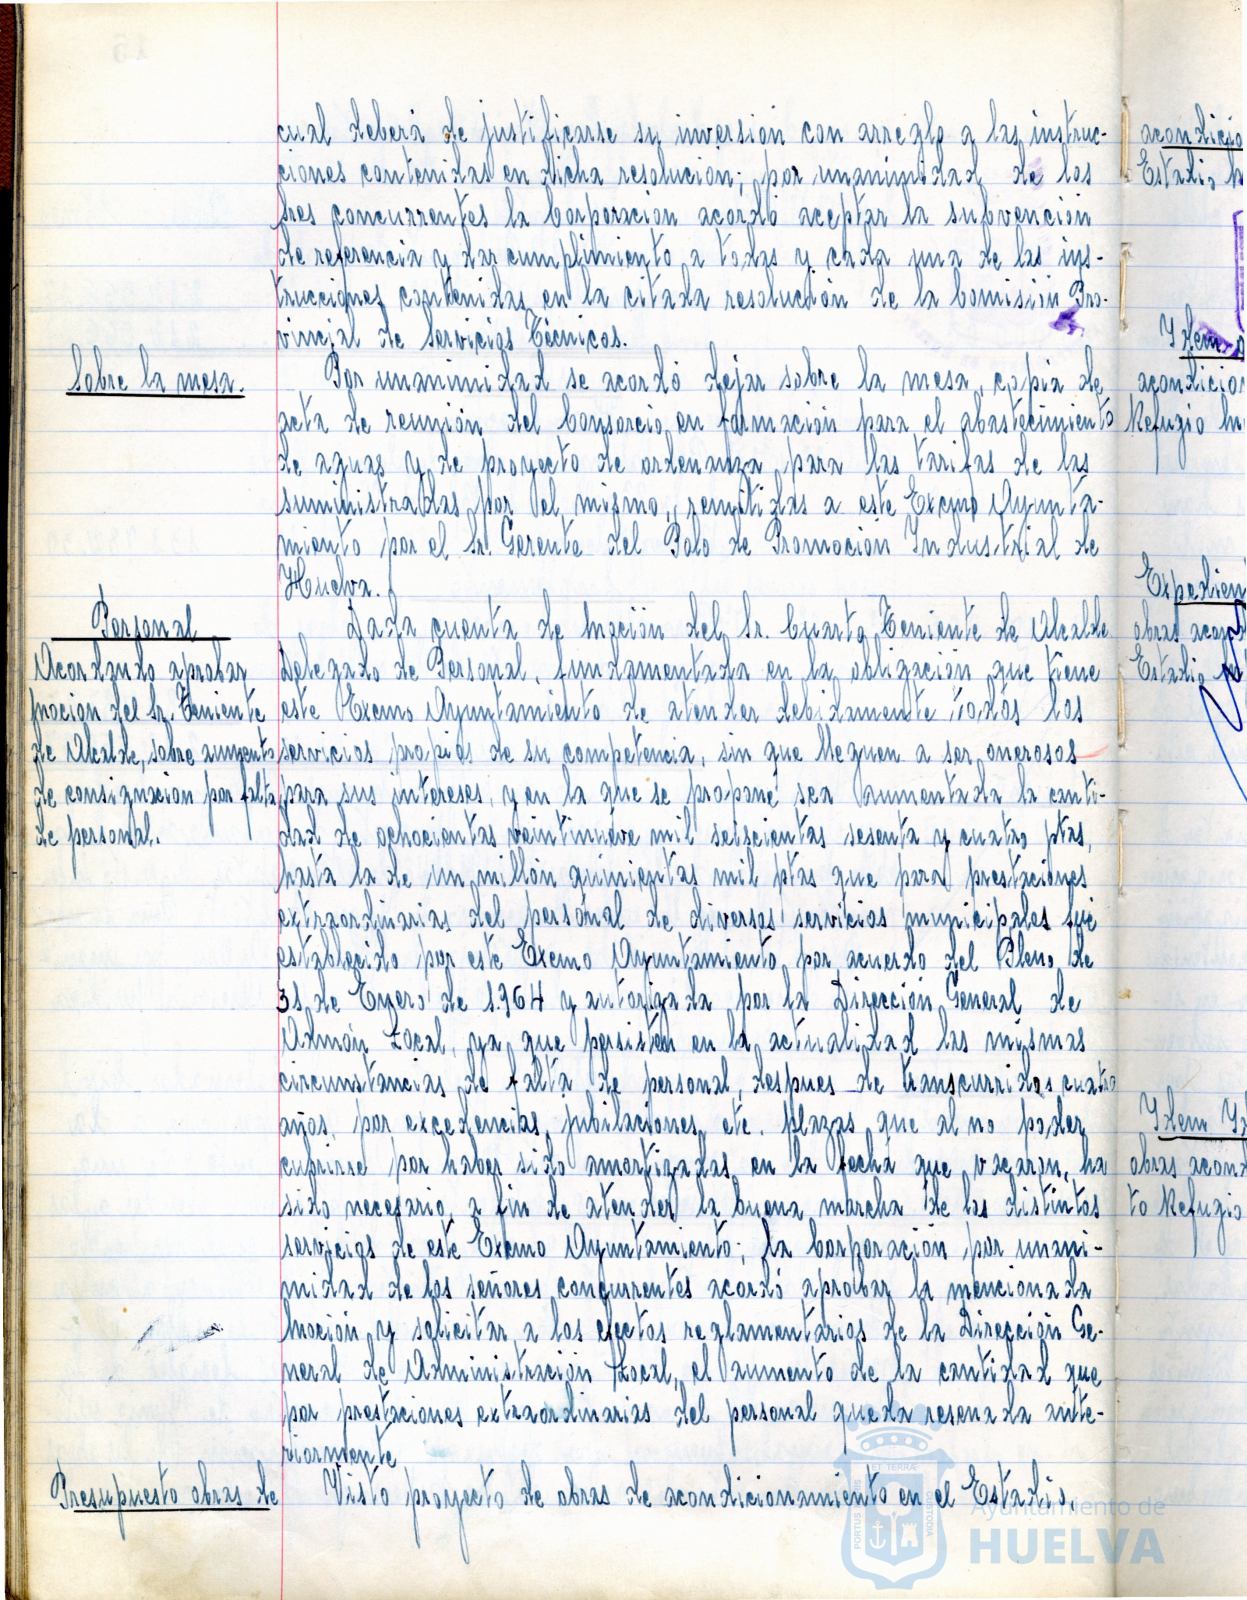 cual deberá de justificarse su inversión con arreglo a las instruc-
ciones contenidas en dicha resolución; por unanimidad de los
Sres concurrentes la Corporación acordó aceptar la subvención
de referencia y dar cumplimiento a todas y cada una de las ins-
trucciones contenidas en la citada resolución de la Comisión Pro-
vincial de Servicios Técnicos.
Sobre la mesa.
Por unanimidad se acordó dejar sobre la mesa, copia de
acta de reunión del Consorcio en formación para el abastecimiento
de aguas y de proyecto de ordenanza para las tarifas de las
suministradas por el mismo, remitidas a este Excmo Ayunta-
miento por el Sr. Gerente del Polo de Promoción Industrial de
Huelva.
Personal
Acordando aprobar
moción del Sr. Teniente
de Alcalde, sobre aumento
de consignación por falta
de personal.
Dada cuenta de Moción del Sr. Cuarto Teniente de Alcalde
Delegado de Personal, fundamentada en la obligación que tiene
este Excmo Ayuntamiento de atender debidamente todos los
servicios propios de su competencia, sin que lleguen a ser onerosos
para sus intereses, y en la que se propone sea aumentada la canti-
dad de ochocientas veintinueve mil seiscientas sesenta y cuatro ptas,
hasta la de un millón quinientas mil ptas que para prestaciones
extraordinarias del personal de diversos servicios municipales fué
establecido por este Excmo Ayuntamiento por acuerdo del Pleno de
31 de Enero de 1.964 y autorizada por la Dirección General de
Admón Local, ya que persisten en la actualidad las mismas
circunstancias de falta de personal, despues de transcurridos cuatro
años, por excedencias, jubilaciones, etc. plazas que al no poder
cubrirse por haber sido amortizadas en la fecha que vacaron, ha
sido necesario, a fin de atender la buena marcha de los distintos
servicios de este Excmo Ayuntamiento; la Corporación por unani-
midad de los señores concurrentes acordó aprobar la mencionada
Moción y solicitar a los efectos reglamentarios de la Dirección Ge-
neral de Administración Local, el aumento de la cantidad que
por prestaciones extraordinarias del personal queda resenada ante-
riormente
Presupuesto obras de
Visto proyecto de obras de acondicionamiento en el Estadio
acondicio
Estadio
Idem
acondicion
Refugio
Expedien
obras acond
Estadio
Idem
obras acond
to Refugio
ET TERRA
PORTUS MARIS
CUSTODIA
Ayuntamiento de
HUELVA